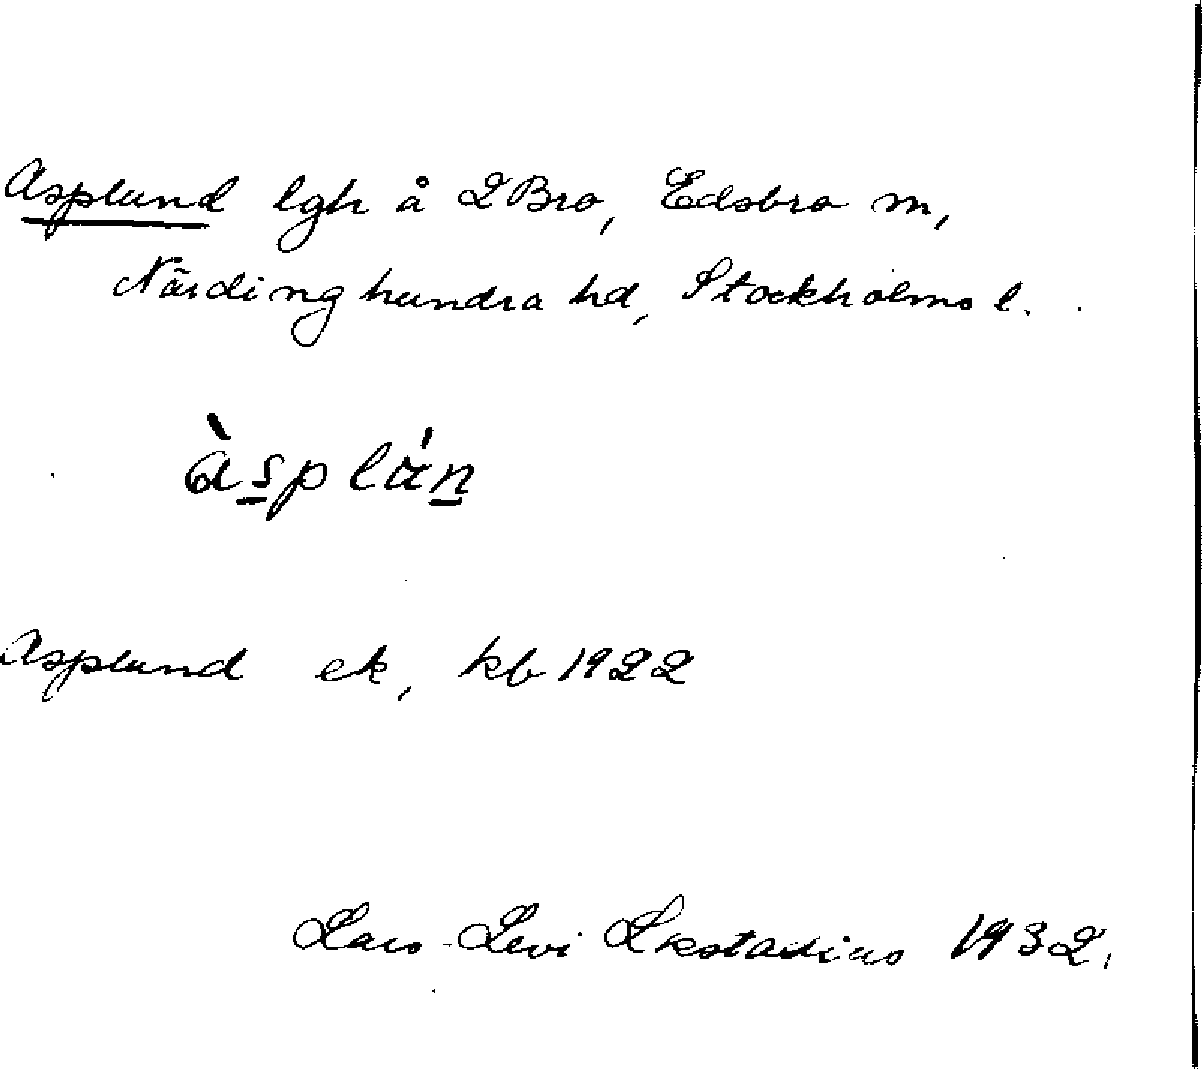 Asplund lgh å 2 Bro, Edsbro sn,
Närdinghundra hd, Stockholms l.
àsplán
Asplund ek, kb 1922
Lars-Levi Læstadius 1932.